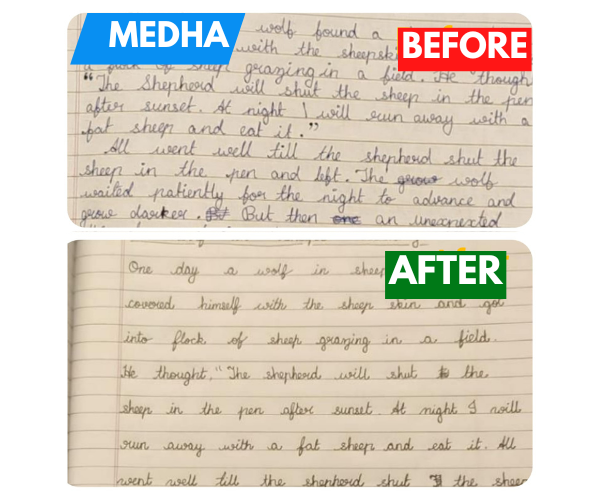 MEDHA
BEFORE
wolf found a
with the sheepski
flock of sheep grazing in a field. He though
"The Shepherd will shut the sheep in the pen
after sunset. At night I will run away with a
fat sheep and eat it."
All went well till the shepherd shut the
sheep in the pen and left. The grow wolf
waited patiently for the night to advance and
grow darker. But But then one an unexpected
AFTER
One day a wolf in sheep
covered himself with the sheep skin and got
into flock of sheep grazing in a field.
He thought, "The shepherd will shut the
sheep in the pen after sunset. At night I will
run away with a fat sheep and eat it. All
went well till the shepherd shut the sheep